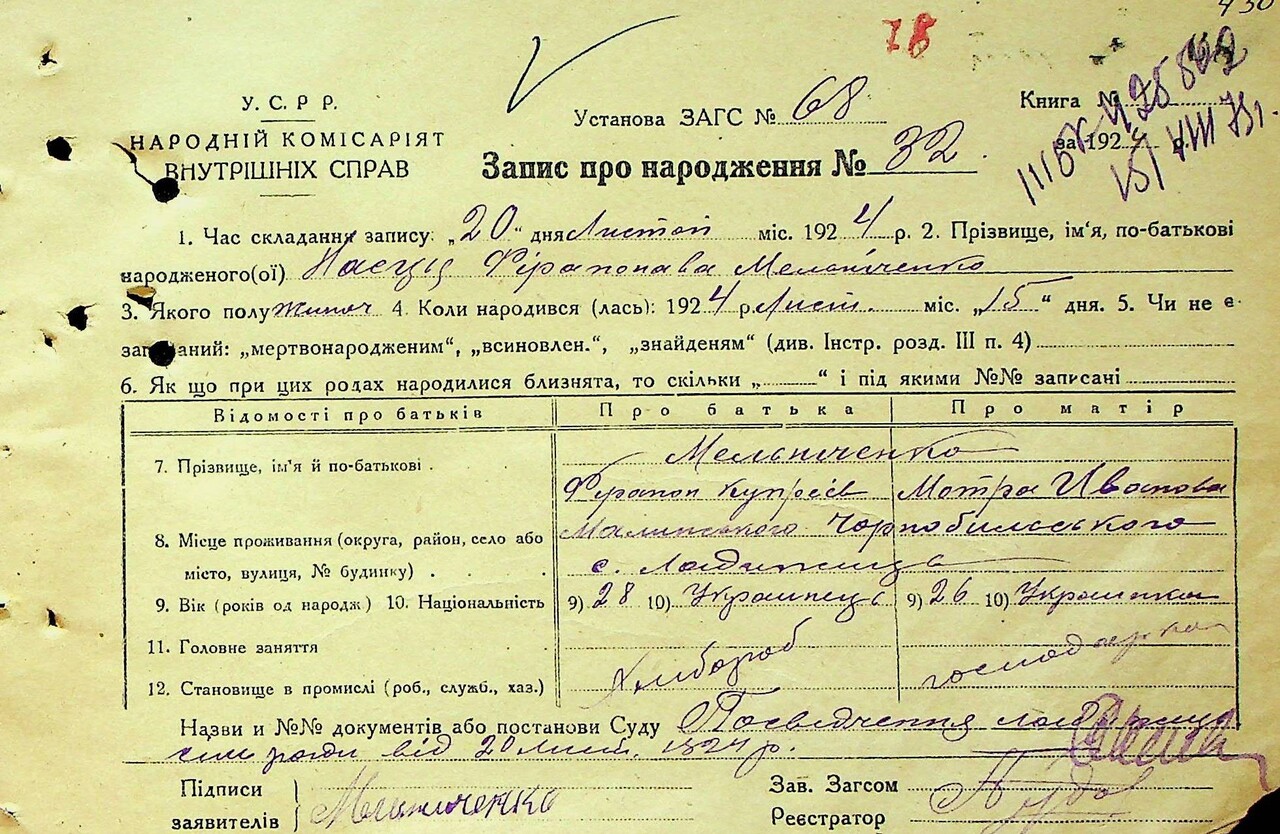 430
18
У. С. Р. Р.
НАРОДНІЙ КОМІСАРІЯТ
ВНУТРІШНІХ СПРАВ
Установа ЗАГС № 68
Книга №
за 1924 р.
Запис про народження № 32.
1. Час складання запису: „20“ дня Листоп міс. 1924 р. 2. Прізвище, ім'я, по-батькові
народженого(ої) Настя Фірапонава Мельниченко
3. Якого полу жіноч 4. Коли народився (лась): 1924 р. Лист. міс. „15“ дня. 5. Чи не є
записаний: „мертвонародженим“, „всиновлен.“, „знайденям“ (див. Інстр. розд. III п. 4)
6. Як що при цих родах народилися близнята, то скільки „ “ і під якими №№ записані
Відомості про батьків Про батька Про матір
7. Прізвище, ім'я й по-батькові . Мельниченко
Фірапон Купріїв Мотра Іванова
8. Місце проживання (округа, район, село або Малинського Чорнобильського
місто, вулиця, № будинку) . . с. Ладижичі
9. Вік (років од народж) 10. Національність 9) 28 10) Українець 9) 26 10) Українка
11. Головне заняття Хлібороб господарка
12. Становище в промислі (роб., служб., хаз.)
Назви и №№ документів або постанови Суду Посвідчення
сіль ради від 20 лист. 1924 р.
Підписи
заявителів Мельниченко
Зав. Загсом
Реєстратор